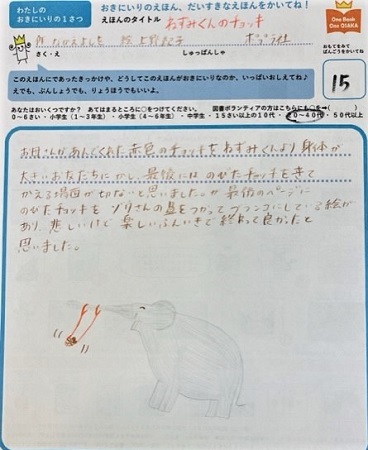 わたしの
おきにいりの1さつ
おきにいりのえほん、だいすきなえほんをかいてね!
えほんのタイトル
ねずみくんのチョッキ
作 なかえよしを 絵 上野紀子 ポプラ社
さく・え しゅっぱんしゃ
One Book
One OTAKA
おもてをみて
ばんごうをかいてね
このえほんにであったきっかけや、どうしてこのえほんがおきにいりなのか、いっぱいおしえてね♪
えでも、ぶんしょうでも、りょうほうでもいいよ。
15
あなたはおいくつですか? あてはまるところに○をつけてください。 図書ボランティアの方はこちらにも○を→( )
0~6さい・小学生(1~3年生)・小学生(4~6年生)・中学生・15さい以上の10代・20~40代・50代以上
お母さんがあんでくれた赤色のチョッキをねずみくんより身体が
大きいお友だちにかし、最後にはのびたチョッキを着て
かえる場面が切ないと思いました。が 最後のページに
のびたチョッキを ゾウさんの鼻をつかってブランコにしている絵が
あり、悲しいだけで 楽しいふんいきで 終わって良かったと
思いました。